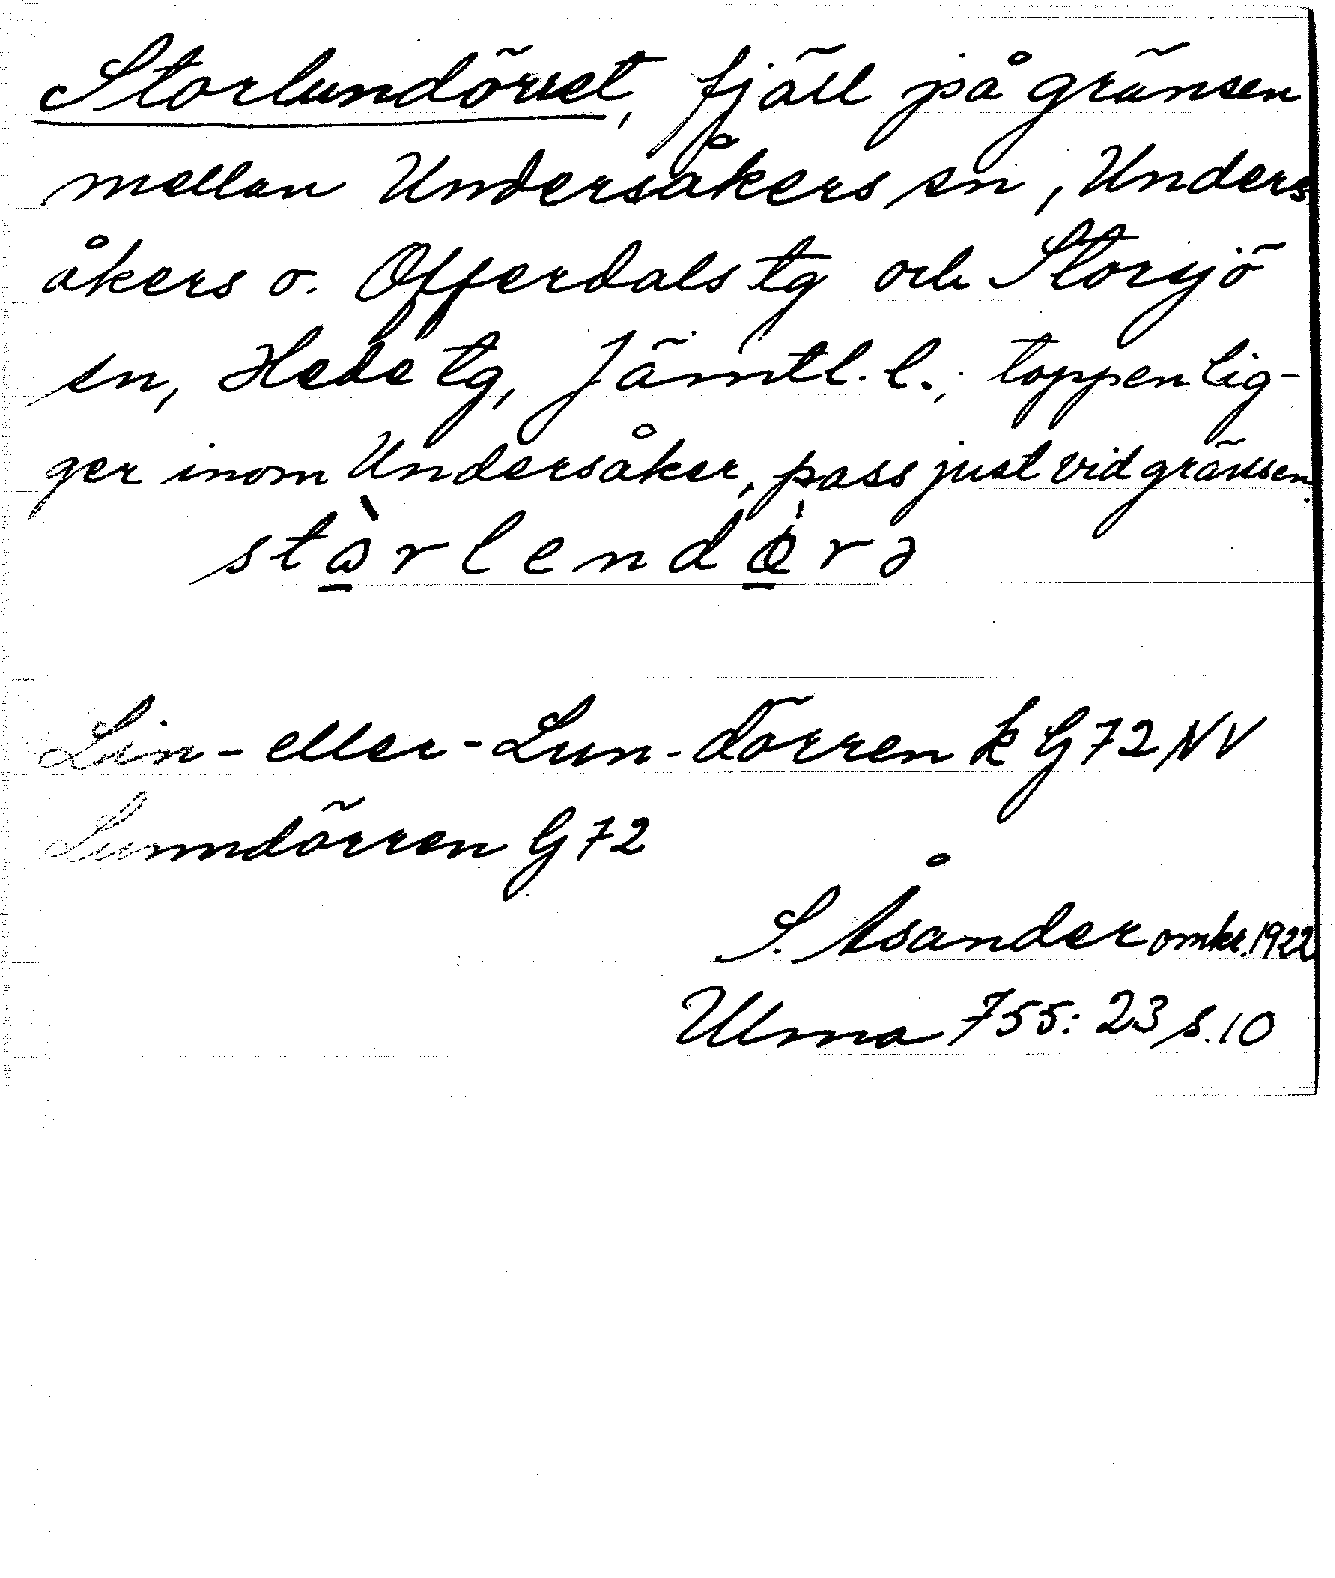 Storlundörret, fjäll på gränsen
mellan Undersåkers sn, Unders
åkers o. Offerdals tg och Storsjö
sn, Hede tg, Jämtl. l.; toppen lig-
ger inom Undersåker, pass just vid gränsen.
stɷ̀rlendə̀rə
Lin- eller - Lun-dörren k G 72 NV
Lunndörren G 72
S. Åsander omkr. 1922
Ulma 755: 23 s. 10